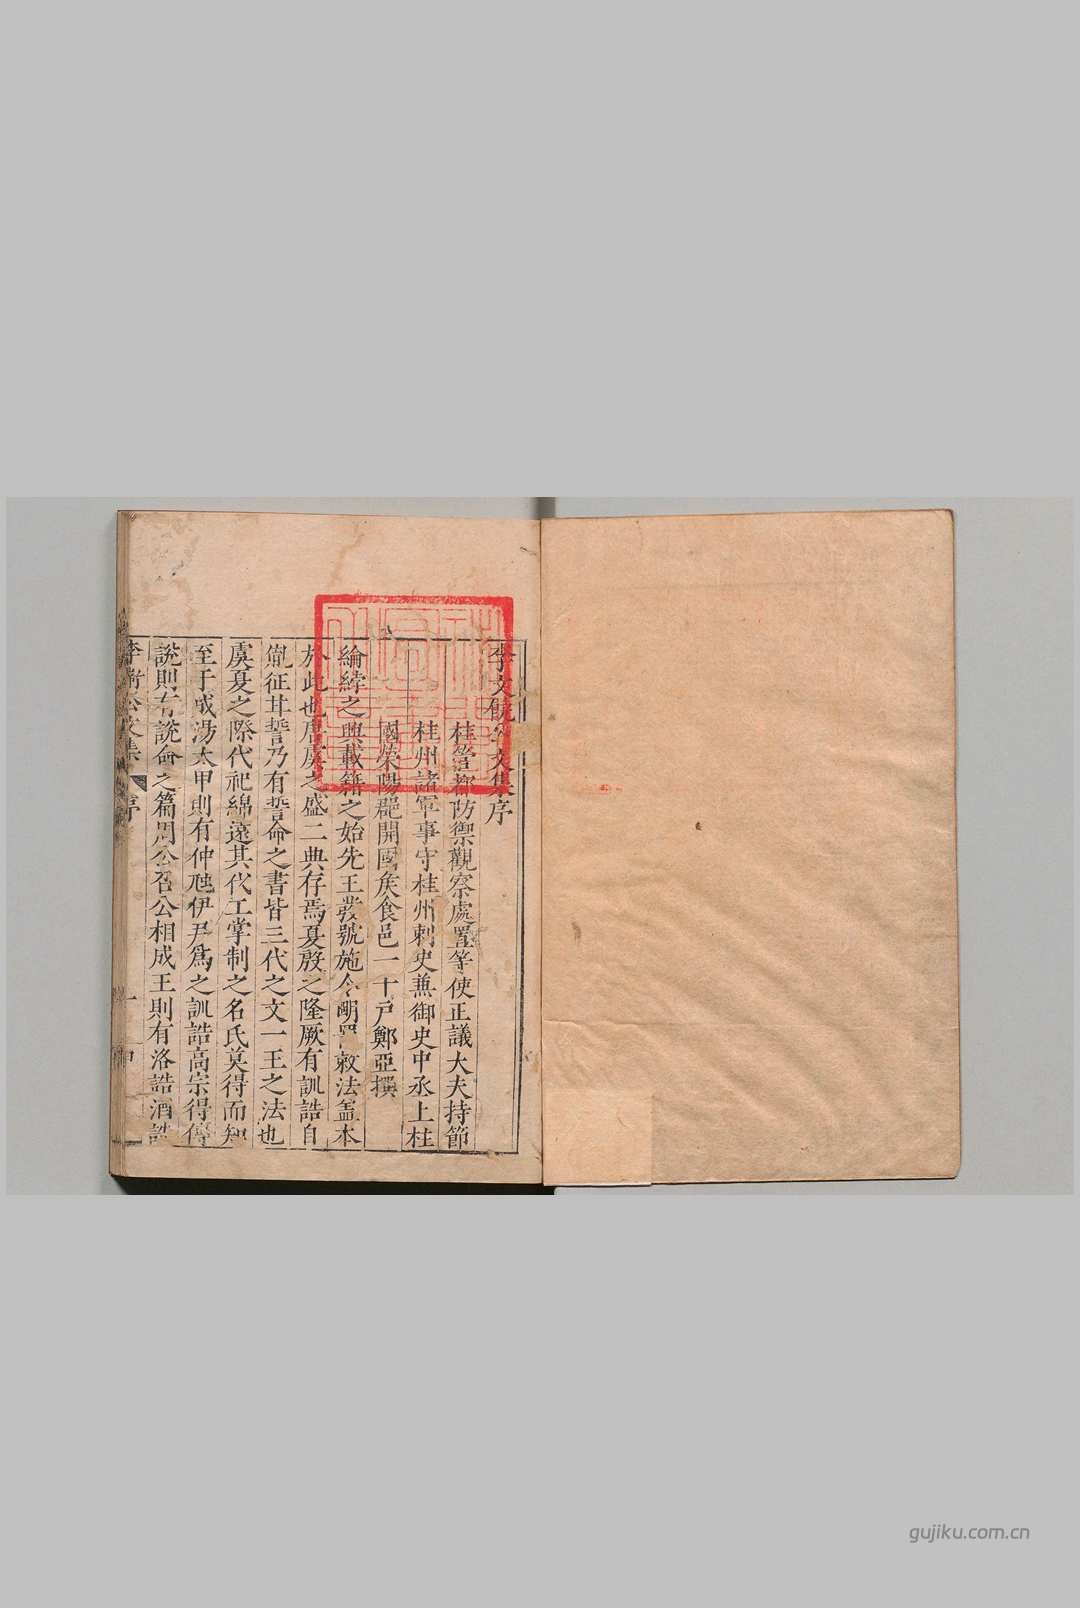 李文饒公文集序
桂管都防禦觀察處置等使正議大夫持節
桂州諸軍事守桂州刺史兼御史中丞上柱
國滎陽郡開國矦食邑一千戶鄭亞撰
綸緯之興載籍之始先王發號施令明罰敕法盖本
於此也唐虞之盛二典存焉夏殷之隆厥有訓誥自
胤征甘誓乃有誓命之書皆三代之文一王之法也
虞夏之際代祀綿遠其代工掌制之名氏莫得而知
至于成湯太甲則有仲虺伊尹爲之訓誥高宗得傅
說則有說命之篇周公召公相成王則有洛誥酒誥
李衛公文集 序 一
gujiku.com.cn